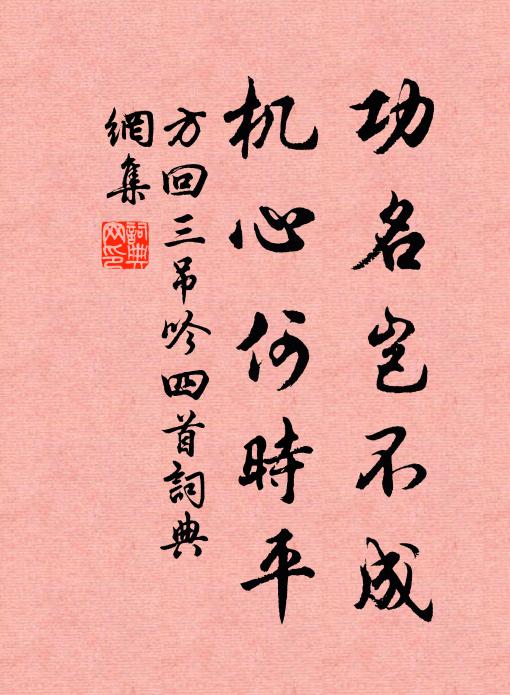 功名岂不成
机心何時平
方回三吊吟四首詞典
網集
詞典
网印